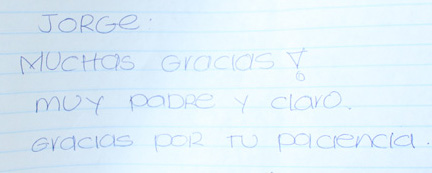 JORGE.
MUCHAS GRACIAS!
MUY PADRE Y CLARO.
GRACIAS POR TU PACIENCIA.